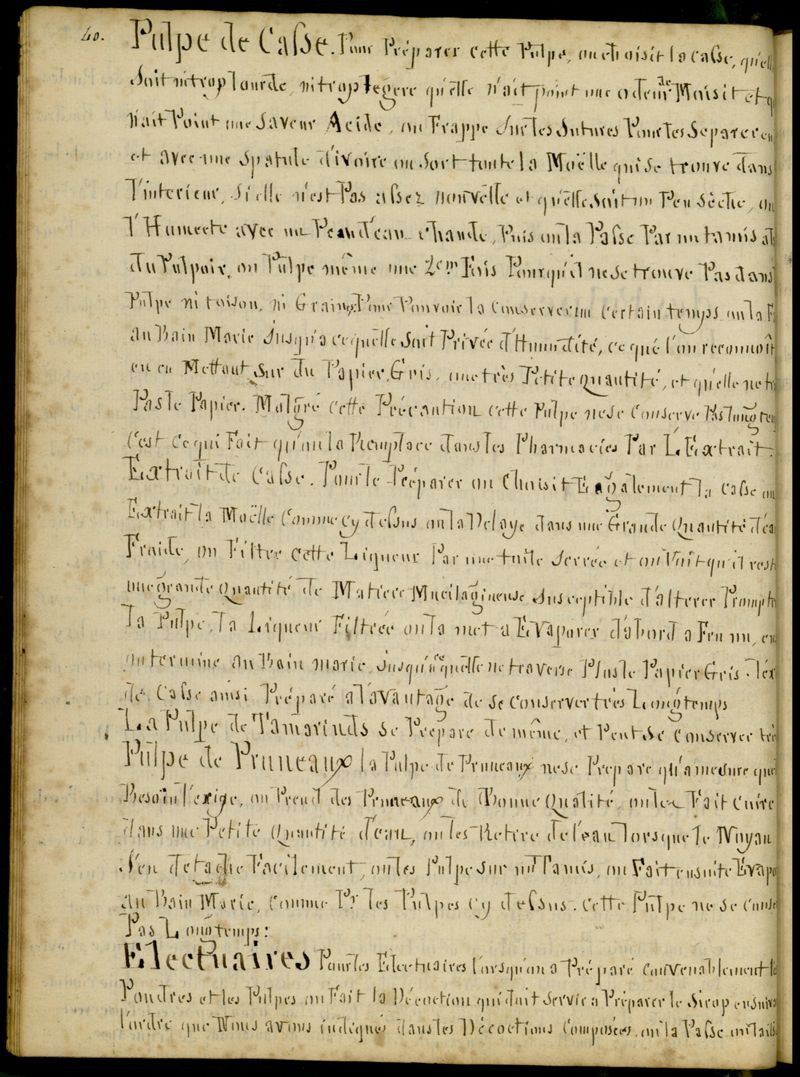 40.
Pulpe de Casse. Pour Préparer cette Pulpe, on choisit la casse, qu'elle
Soit ni trop lourde, ni trop legere qu'elle n'ait point une odeur de Moisi et q
N'ait Point une Saveur Acide, on Frappe Sur les Sutures Pour les Separer en
et avec une Spatule d'ivoire on Sort toute la Moëlle qui se trouve dans
l'interieur, Si elle n'est Pas assez nouvelle et qu'elle soit un Peu Sèche, on
l'Humecte avec un Peu d'eau chaude, Puis on la Passe Par un tamis a
du Pulpoir, on Pulpe même une 2eme Fois Pour qu'il ne se trouve Pas dans
Pulpe ni toison, ni Grains, Pour Pouvoir la Conserver un Certain temps on la F
au Bain Marie Jusqu'a ce qu'elle Soit Privée d'Humidité, ce que l'on reconnoit
en en Mettant Sur du Papier Gris, une très Petite quantité, et qu'elle ne t
Pas le Papier. Malgré Cette Précaution cette Pulpe ne se Conserve Pas longtem
C'est Ce qui Fait qu'on la Remplace dans les Pharmacies Par L'Extrait.
Extrait de Casse. Pour le Préparer on Choisit Egalement la Casse on
Extrait la Moëlle Comme Cy dessus on la Delaye dans une Grande Quantité d'ea
Froide, on Filtre Cette Liqueur Par une toile Serrée et on Voit qu'il rest
une grande Quantité de Matiere Mucilagineuse Susceptible d'alterer Prompt
la Pulpe, la Liqueur Filtrée on la met a Evaporer d'abord a Feu nu, en
on termine au Bain marie, Jusqu'a ce qu'elle ne traverse Plus le Papier Gris. l'ex
de Casse ainsi Préparé a l'avantage de se Conserver très Longtemps
La Pulpe de Tamarinds Se Prépare de même, et Peut Se Conserver trè
Pulpe de Pruneaux la Pulpe de Pruneaux ne se Prepare qu'a mesure que
Besoin l'exige, on Prend des Pruneaux de Bonne Qualité, on les Fait Cuire
dans une Petite Quantité d'eau, on les Retire de l'eau lorsque le Noyau
S'en detache Facilement, on les Pulpe Sur un Tamis, on Fait ensuite Evapo
au Bain Marie, Comme Pr. les Pulpes Cy dessus. Cette Pulpe ne se Conse
Pas Longtemps:
Electuaires Pour les Electuaires lorsqu'on a Préparé Convenablement le
Poudres et les Pulpes on Fait la Décoction qui doit Servir a Préparer le Sirop ensuiv
l'ordre que Nous avons indiqués dans les Décoctions Composées. on la Passe